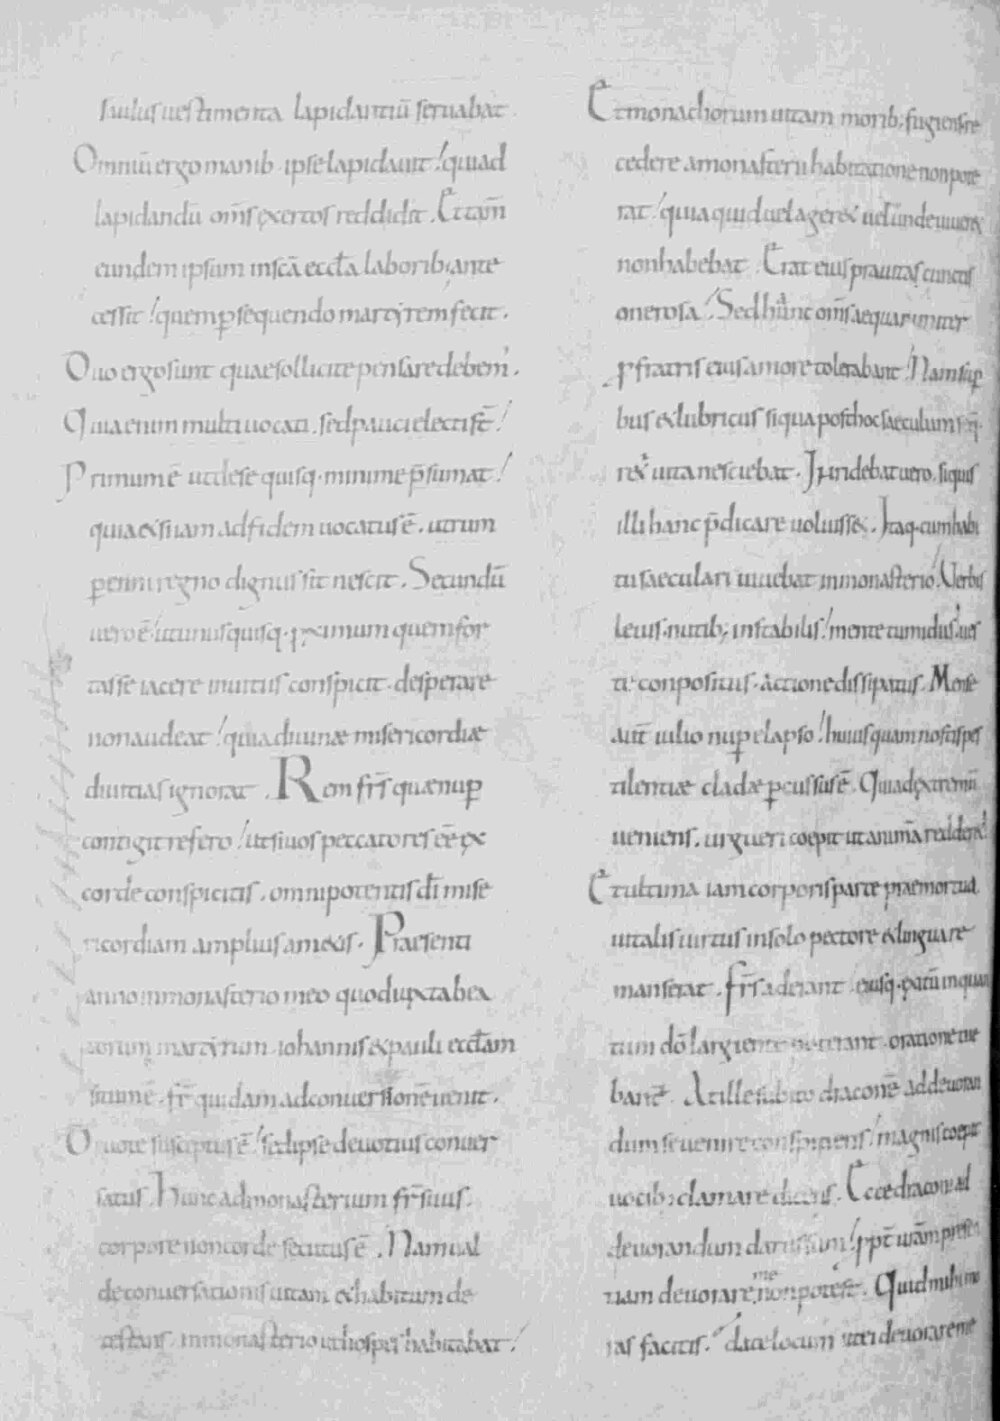 saulus uestimenta lapidantiū seruabat
Omniū ergo manib· ipse lapidauit! quia ad
lapidandū om̄s exertos reddidit. Et tam̄
eundem ipsum in scā eccl̄a laborib; ante
cessit! quem p̱sequendo martẏrem fecit.
Duo ergo sunt quae sollicite pensare debem᾽.
Quia enim multi uocati. sed pauci electi st̄!
Primum ē ut de se quisq· minime p̄sumat!
quia & si iam ad fidem uocatus ē. utrum
p̱enni regno dignus sit nescit. Secundū
uero ē! ut unusquisq· p̱ximum quem for
tasse iacere in uitiis conspicit· desperare
non audeat! quia diuinæ misericordiæ
diuitias ignorat. Rem fr̄s quæ nup̱
contigit refero! ut si uos peccatores eē ex
corde conspicitis. omnipotentis dī mise
ricordiam amplius ametis. Praesenti
anno in monasterio meo quod iuxta bea
torum martẏrum iohannis & pauli eccl̄am
situm ē. fr̄ quidam ad conuersionē uenit.
Deuote susceptus ē! sed ipse deuotius conuer
satus. Hunc ad monasterium fr̄ suus.
corpore non corde secutus ē. Nam ual
de conuersationis uitam & habitum de
testans. in monasterio ut hospes habitabat!
Et monachorum uitam morib; fugiens· re
cedere a monasterii habitatione non pote
rat! quia quid uel ageret uel unde uiueret
non habebat. Erat eius prauitas cunctis
onerosa! Sed hunc om̄s aequanimiter
p̱ fratris eius amore tolerabant! Nam sup̱
bus & lubricus si qua post hoc saeculum seq·
ret᾽ uita nesciebat. Irridebat uero. si quis
illi hanc p̄dicare uoluisset. Itaq· cum habi
tu saeculari uiuebat in monasterio! Uerbis
leuis· nutib; instabilis! mente tumidus! ues
te conpositus· actione dissipatus. Mense
aut̄ iulio nup̱ elapso! huius quam nostis pes
tilentiæ cladæ p̱cussus ē. Qui ad extremū
ueniens. urgueri coepit ut animā redderet!
Et ultima iam corporis parte praemortua
uitalis uirtus in solo pectore & lingua re
manserat. fr̄s aderant eiusq· exitū in quan
tum dō largiente poterant oratione tue
bant᾽. At ille subito draconē ad deuoran
dum se uenire conspiciens! magnis coepit
uocib; clamare dicens. Ecce draconi ad
deuorandum datus sum! ppt̄ ur̄am presen
tiam deuorare me non potest. Quid mihi mo
ras facitis. date locum ut ei deuorare me